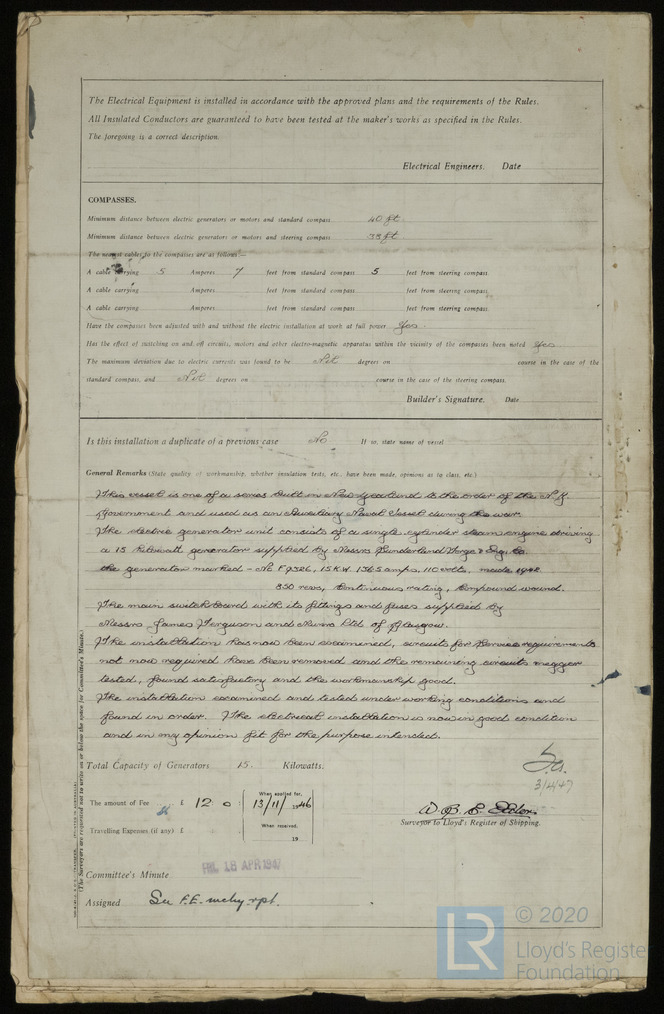 The Electrical Equipment is installed in accordance with the approved plans and the requirements of the Rules.
All Insulated Conductors are guaranteed to have been tested at the maker's works as specified in the Rules.
The foregoing is a correct description.
Electrical Engineers. Date
COMPASSES.
Minimum distance between electric generators or motors and standard compass 40 ft.
Minimum distance between electric generators or motors and steering compass 38 ft
The nearest cables to the compasses are as follows:—
A cable carrying 5 Amperes 7 feet from standard compass 5 feet from steering compass.
A cable carrying Amperes feet from standard compass feet from steering compass.
A cable carrying Amperes feet from standard compass feet from steering compass.
Have the compasses been adjusted with and without the electric installation at work at full power Yes.
Has the effect of switching on and off circuits, motors and other electro-magnetic apparatus within the vicinity of the compasses been noted Yes.
The maximum deviation due to electric currents was found to be Nil degrees on course in the case of the
standard compass, and Nil degrees on course in the case of the steering compass.
Builder's Signature. Date
Is this installation a duplicate of a previous case No If so, state name of vessel
General Remarks (State quality of workmanship, whether insulation tests, etc., have been made, opinions as to class, etc.)
This vessel is one of a series built in New Zealand to the order of the N.Z.
Government and used as an Auxiliary Naval Vessel during the war.
The electric generator unit consists of a single cylinder steam engine driving
a 15 kilowatt generator supplied by Messrs Sunderland Forge & Eng. Co.
the generator marked - No F9326, 15KW 136.5 amps, 110 volts, made 1942.
350 revs, Continuous rating, Compound wound.
The main switchboard with its fittings and fuses supplied by
Messrs James Ferguson and Munro Ltd of Glasgow.
The installation has now been examined, circuits for Service requirements
not now required have been removed and the remaining circuits megger
tested, found satisfactory and the workmanship good.
The installation examined and tested under working conditions and
found in order. The electrical installation is now in good condition
and in my opinion fit for the purpose intended.
Total Capacity of Generators 15. Kilowatts.
3/4/47
The amount of Fee £ 12 : 0 : When applied for, 13/11/1946
W. B. C.
Surveyor to Lloyd's Register of Shipping.
Travelling Expenses (if any) £ When received, 19
FRI. 18 APR 1947
Committee's Minute
Assigned See F.E. mchy. rpt.
(The Surveyors are requested not to write on or below the space for Committee's Minute.)
LR © 2020
Lloyd's Register
Foundation